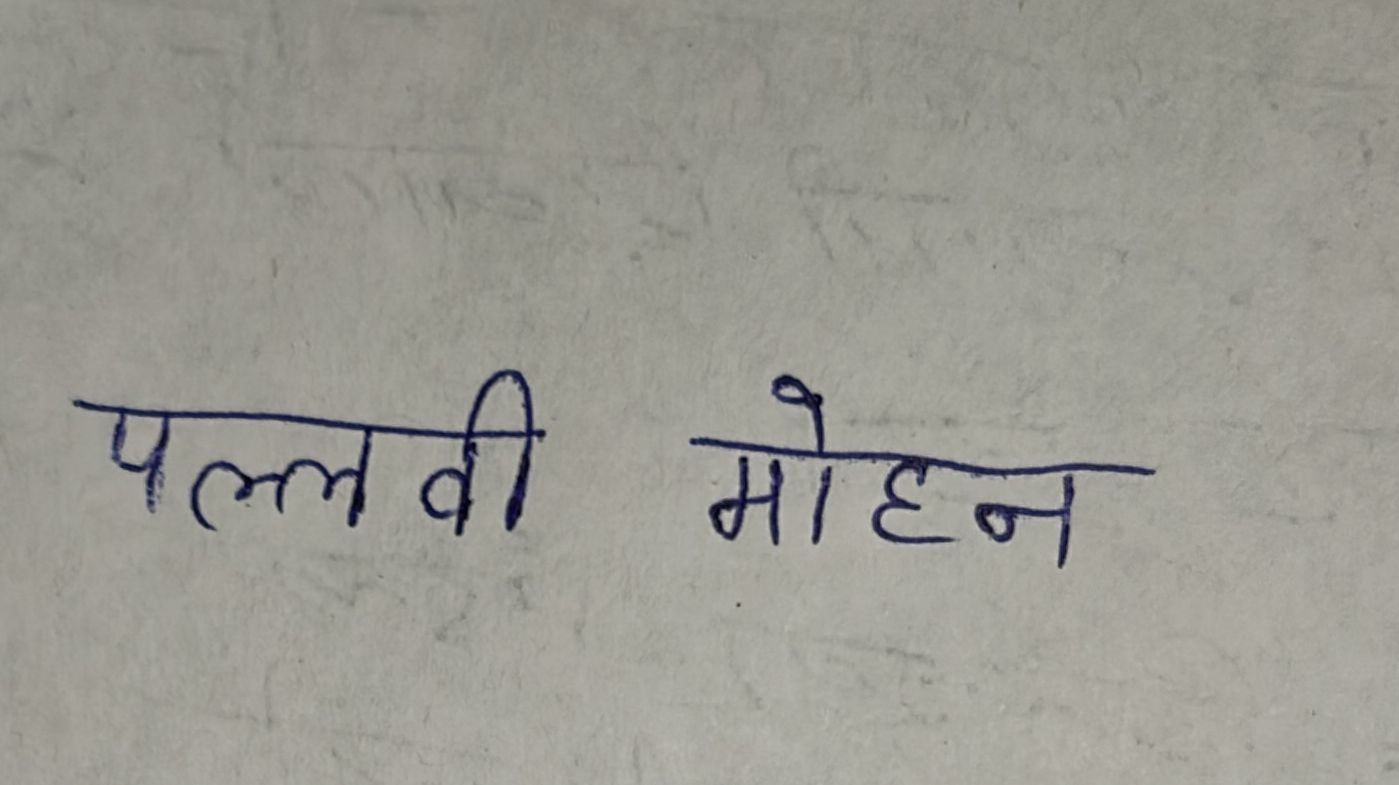 पल्लवी मोहन